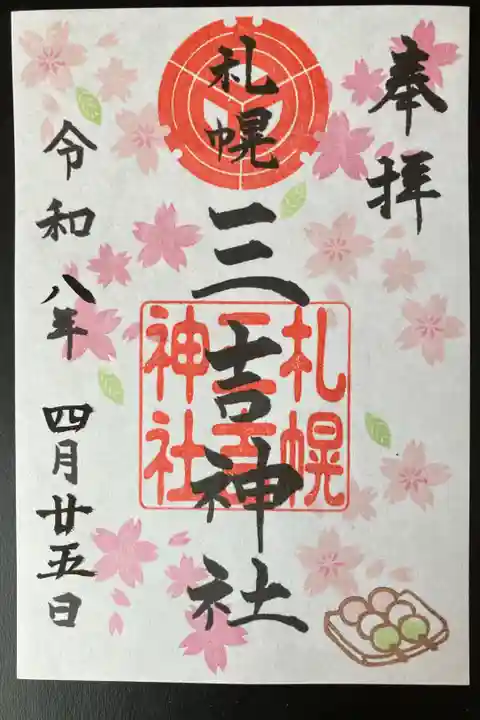 奉拝
札幌
三吉神社
札幌
三吉
神社
令和八年四月廿五日